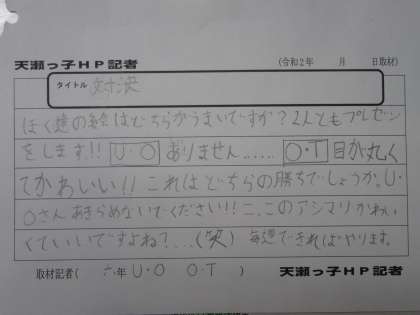 天瀬っ子HP記者 (令和2年 月 日取材)
タイトル 対決
ぼく達の絵はどちらがうまいですか？2人ともプレゼン
をします!! U・O ありません…… O・T 目が丸く
てかわいい!! これはどちらの勝ちでしょうか。U・
Oさんあきらめないでください!! ここのアシマリかわい
くていいですよね？…(笑) 毎週できればやります。
取材記者( 六年 U・O O・T ) 天瀬っ子HP記者